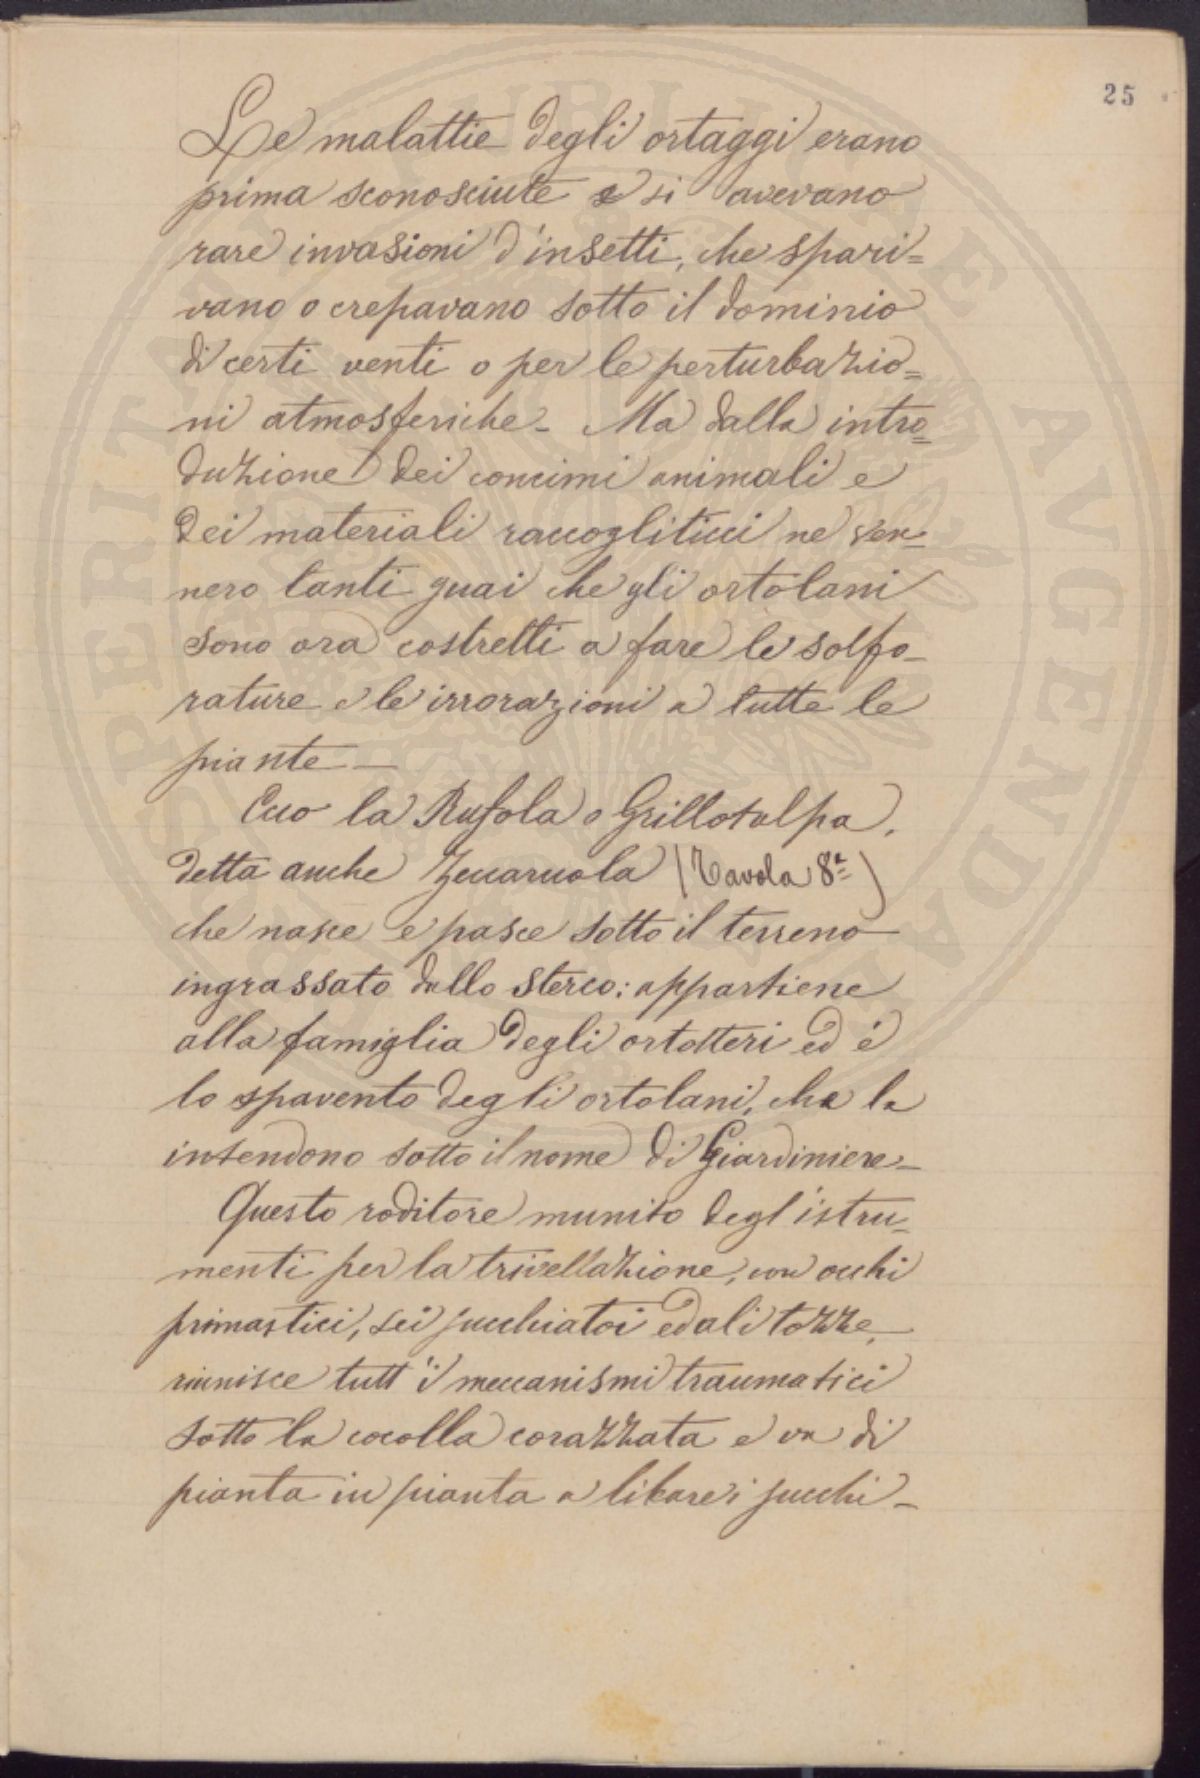 25
Le malattie degli ortaggi erano
prima sconosciute e si avevano
rare invasioni d'insetti, che spari=
vano o crepavano sotto il dominio
di certi venti o per le perturbazio=
ni atmosferiche. Ma dalla intro=
duzione dei concimi animali e
dei materiali raccogliticci ne ven=
nero tanti guai che gli ortolani
sono ora costretti a fare le solfo-
rature e le irrorazioni a tutte le
piante—
Ecco la Rufola o Grillotalpa,
detta anche Zuccaruola (Tavola 8ª)
che nasce e pasce sotto il terreno
ingrassato dallo sterco: appartiene
alla famiglia degli ortotteri ed é
lo spavento degli ortolani, che la
intendono sotto il nome di Giardiniere—
Questo roditore munito degl'istru=
menti per la trivellazione, con occhi
primastici, sei succhiatoi ed ali tozze,
riunisce tutt'i meccanismi traumatici
sotto la cocolla corazzata e va di
pianta in pianta a libare i succhi—
PROSPERITATI PUBLICAE AVGENDAE